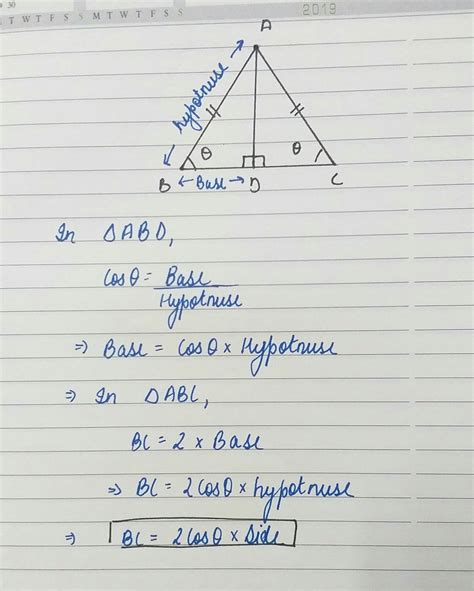 30
T W T F S S M T W T F S S 2019
A
hypotnuse
θ θ
B ← Base → D C
In △ABD,
Cosθ = Base
Hypotnuse
⇒ Base = Cosθ × Hypotnuse
⇒ In △ABC,
BC = 2 × Base
⇒ BC = 2Cosθ × hypotnuse
⇒ BC = 2Cosθ × Side